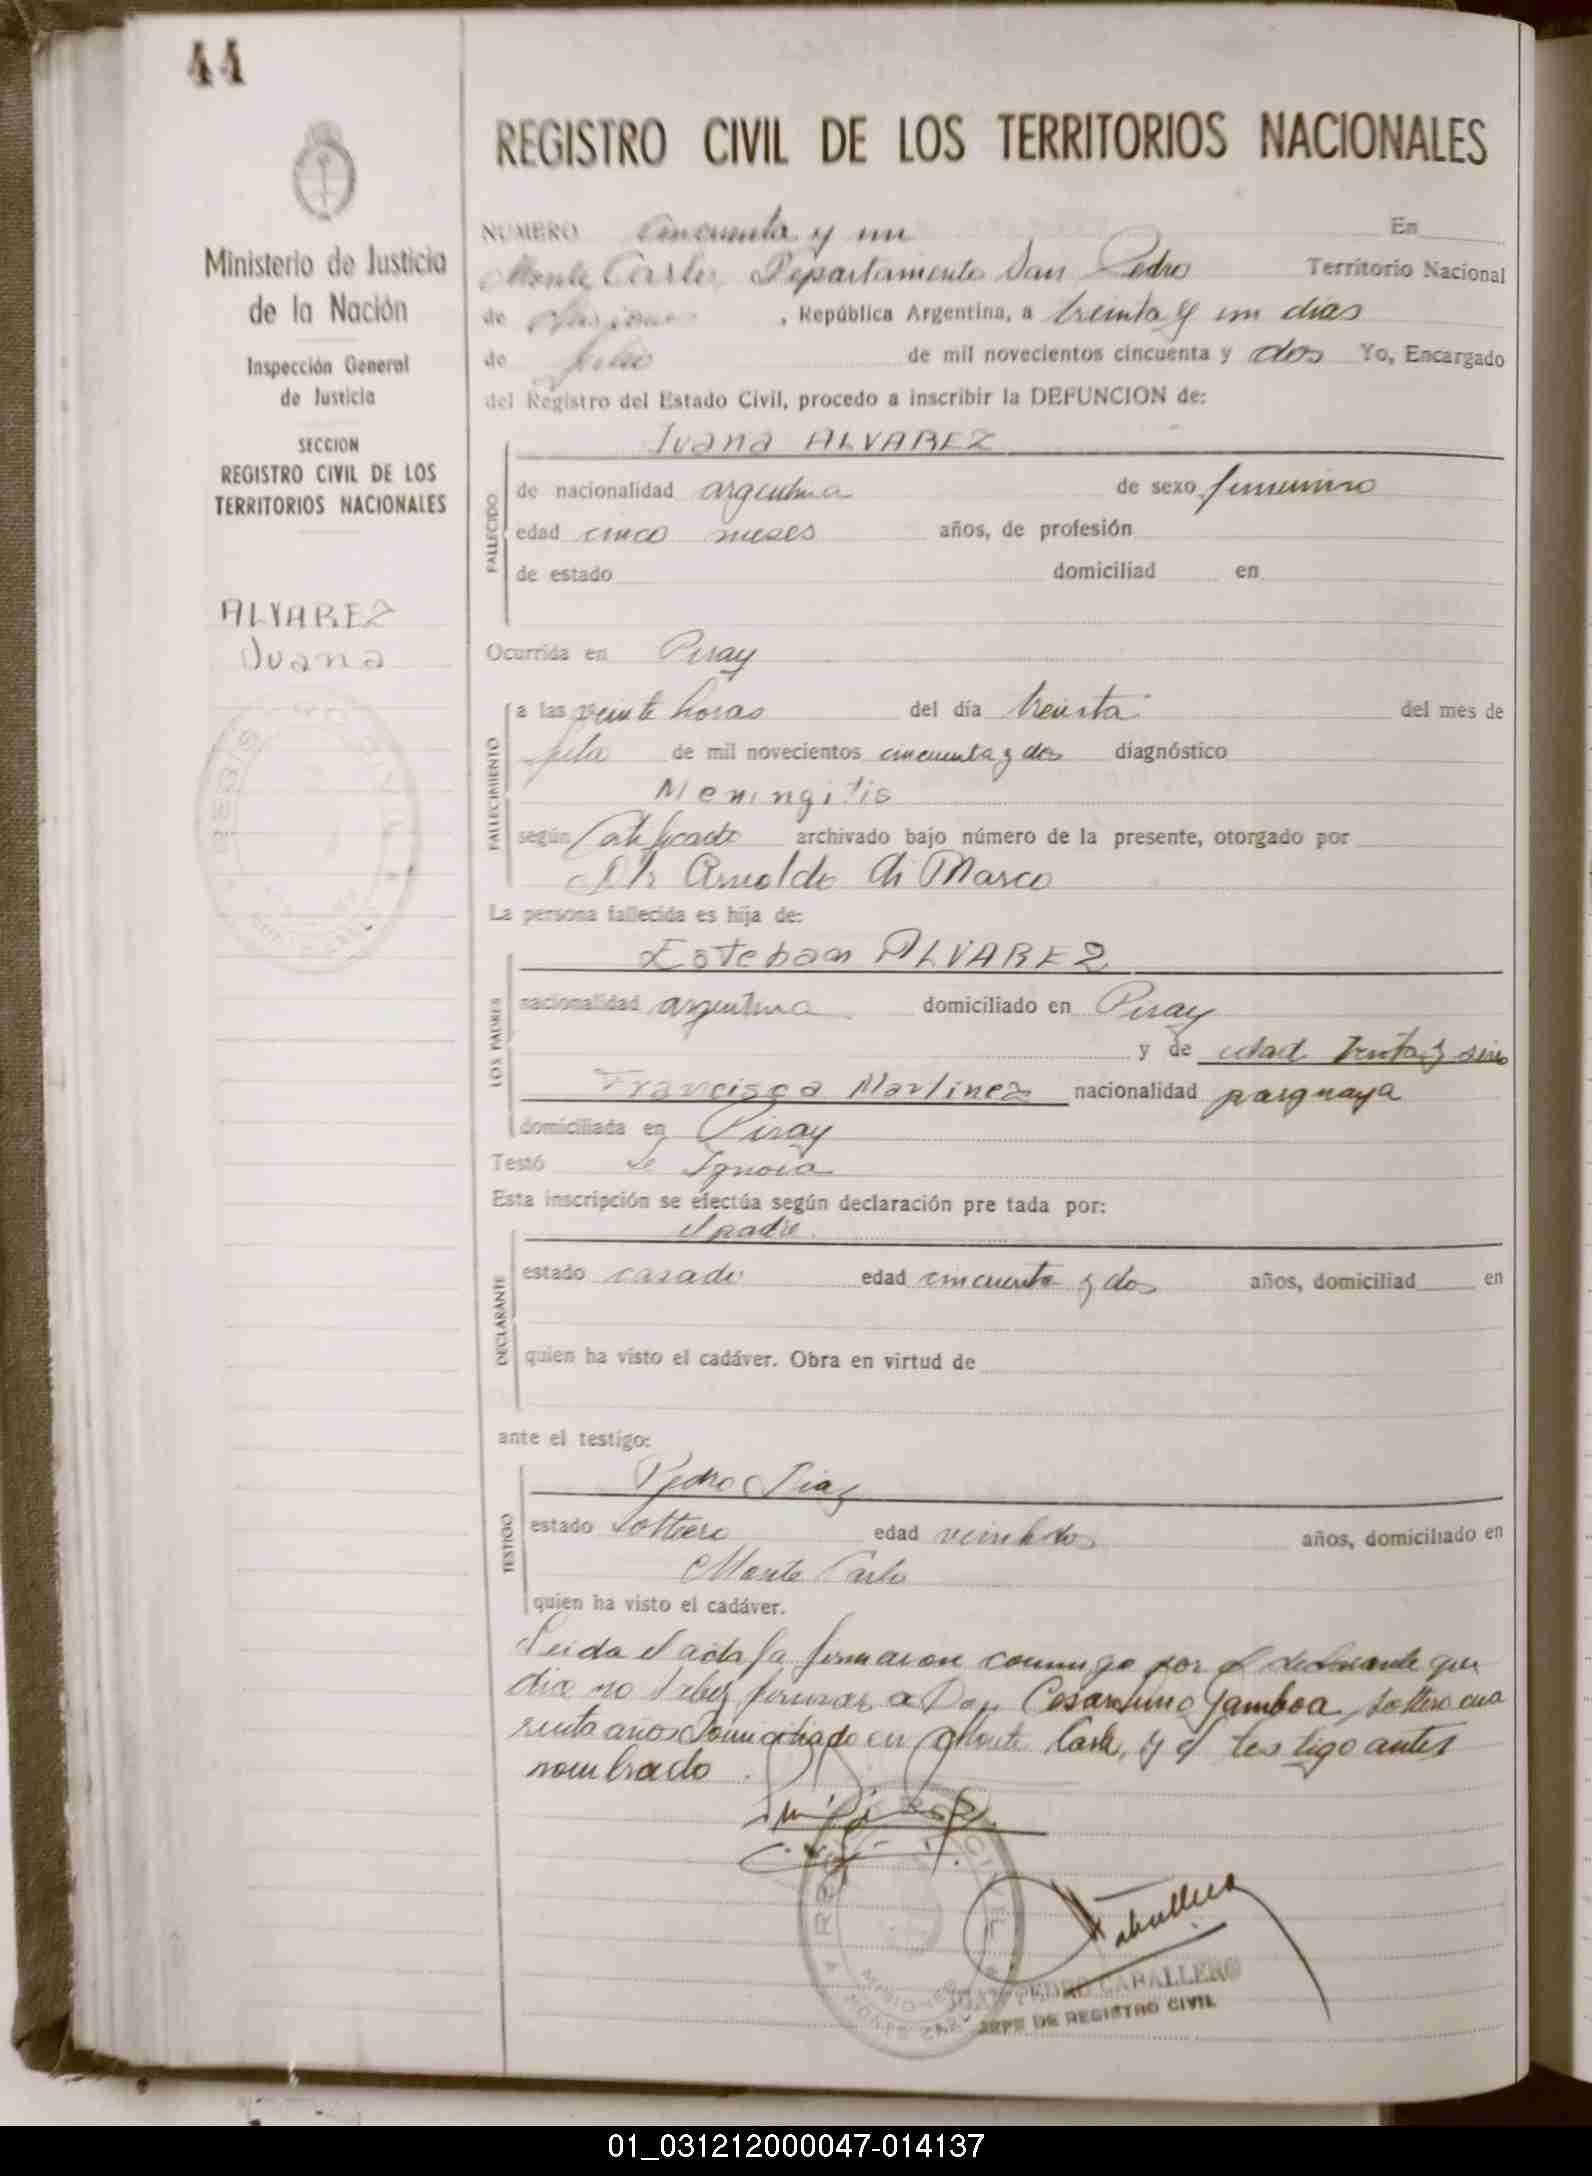 44
REGISTRO CIVIL DE LOS TERRITORIOS NACIONALES
Ministerio de Justicia
de la Nación
Inspección General
de Justicia
SECCION
REGISTRO CIVIL DE LOS
TERRITORIOS NACIONALES
ALVAREZ
Juana
NUMERO cincuenta y un En
Monte Carlo, Departamento San Pedro Territorio Nacional
de Misiones, República Argentina, a treinta y un dias
de Julio de mil novecientos cincuenta y dos Yo, Encargado
del Registro del Estado Civil, procedo a inscribir la DEFUNCION de:
Juana ALVAREZ
FALLECIDO
de nacionalidad argentina de sexo femenino
edad cinco meses años, de profesión
de estado domiciliad en
Ocurrida en Piray
FALLECIMIENTO
a las veinte horas del día treinta del mes de
Julio de mil novecientos cincuenta y dos diagnóstico
Meningitis
según Certificado archivado bajo número de la presente, otorgado por
Dr Arnoldo di Marco
La persona fallecida es hija de:
Esteban ALVAREZ
LOS PADRES
nacionalidad argentina domiciliado en Piray
y de edad
Francisca Martinez nacionalidad paraguaya
domiciliada en Piray
Testó Se Ignora
Esta inscripción se efectúa según declaración pre tada por:
el padre
DECLARANTE
estado casado edad cincuenta y dos años, domiciliad en
quien ha visto el cadáver. Obra en virtud de
ante el testigo:
Pedro Diaz
TESTIGO
estado soltero edad veintidos años, domiciliado en
Monte Carlo
quien ha visto el cadáver.
Leida el acta la firmaron conmigo por el declarante que
dice no saber firmar a Don Gamboa, soltero cua
renta años domiciliado en Monte Carlo, y el testigo antes
nombrado.
REGISTRO CIVIL
MISIONES
PEDRO CABALLERO
JEFE DE REGISTRO CIVIL
01_031212000047-014137